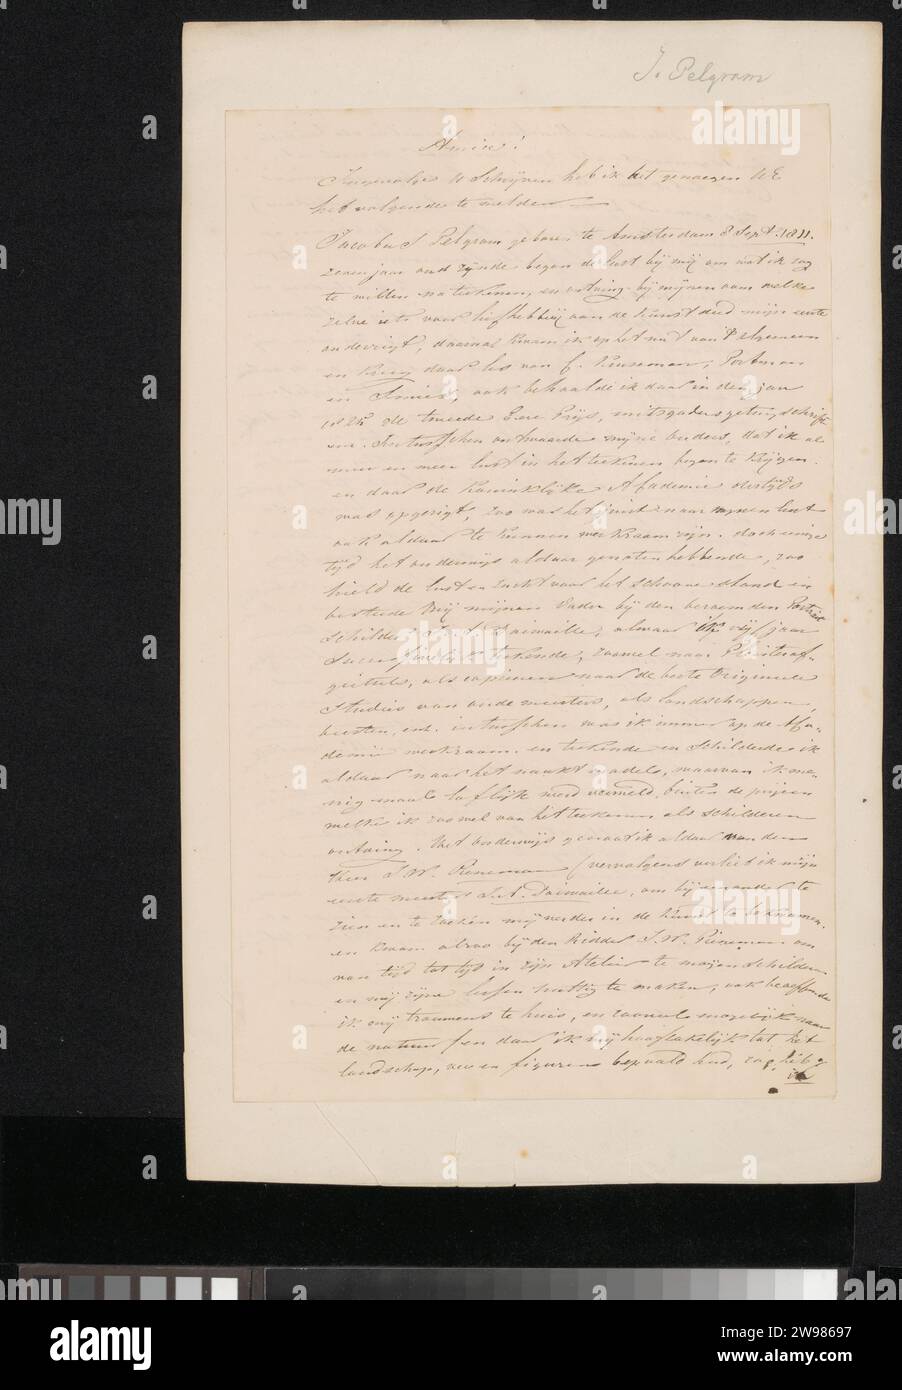 J. Pelgram
Amice!
Ingevolge U Schrijven heb ik het genoegen UE
het volgende te melden
Jacobus Pelgram geboren te Amsterdam 8 Sept. 1811.
zeven jaar oud zijnde begon de lust bij mij om wat ik zag
te willen na tekenen, en ontving bij mijnen oom welke
zelve iets voor liefhebberij aan de Kunst deed mijn eerste
onderrigt, daarna kwam ik op het nut van 't algemeen
en kreeg daar les van G. Kruseman, Portman
en, ook behaalde ik daar in den jare
1825 de tweede Eere Prijs, mitsgaders getuigschrift
enz. Intusschen ontwaarde mijne Ouders, dat ik al
meer en meer lust in het tekenen begon te krijgen.
en daar de Koninklijke Akademie destijds
was opgerigt, zoo was het juist naar mijnen lust
ook aldaar te kunnen werkzaam zijn. doch eenige
tijd het onderwijs aldaar genoten hebbende, zoo
hield de lust en zucht voor het schoone stand en
bestede mij mijnen Vader bij den beroemden Portrait
Schilder Daiwaille, alwaar ik vijf jaar
Successivelijk tekende, zoowel naar Pleisteraf-
gietsels, als copieren naar de beste Origineele
Studies van oude meesters, als landschappen,
beesten, enz. intusschen was ik immer op de Aka-
demie werkzaam. en tekende en Schilderde ik
aldaar naar het naakt model, waarvan ik me-
nig maal loflijk werd vermeld, buiten de prijzen
welke ik zoowel van het tekenen als schilderen
ontving. Het onderwijs genoot ik aldaar van den
Heer J. W. Pieneman (vervolgens verliet ik mijn
eerste meester Daiwaille, om bij een ander te
zien en te zoeken mij verder in de Kunst te bekwamen.
en kwam alzoo bij den Ridder J. W. Pieneman om
van tijd tot tijd in zijn Atelier te mogen Schilderen
en mij zijne lessen nuttig te maken, ook beoeffende
ik mij trouwens te huis, en zooveel mogelijk naar
de natuur en daar ik mij hoofdzakelijk tot het
landschap, vee en figuren bepaald had, zag heb
ik
alamy
Image ID: 2W98697
www.alamy.com